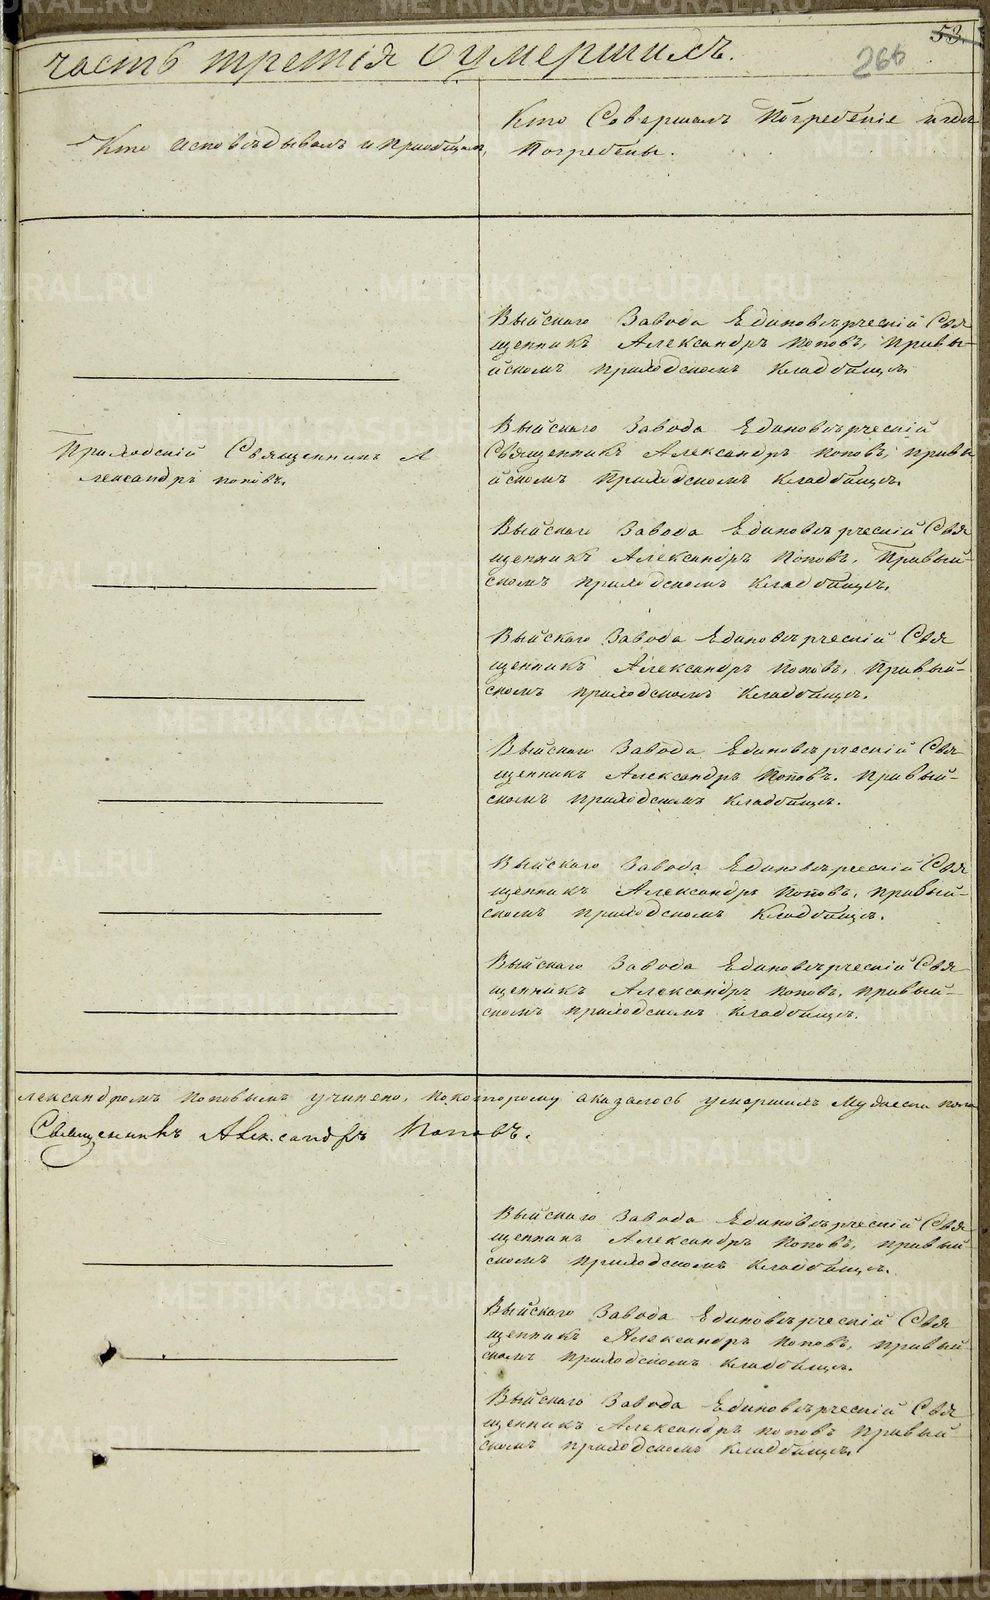 53.
266
часть третія о умершихъ.
Кто исповѣдывалъ и приобщалъ.
Кто Совершалъ Погребеніе и гдѣ
Погребены.
Выйскаго Завода Единовѣрческій Свя
щенникъ Александръ Поповъ, При Вы-
йскомъ приходскомъ кладбищѣ.
Приходскій Священникъ А
лександръ поповъ.
Выйскаго Завода Единовѣрческій
Священникъ Александръ поповъ, при Вы
йскомъ приходскомъ кладбищѣ.
Выйскаго Завода Единовѣрческій Свя
щенникъ Александръ Поповъ, При Вый-
скомъ приходскомъ кладбищѣ.
Выйскаго Завода Единовѣрческій Свя
щенникъ Александръ поповъ, При Вый-
скомъ приходскомъ кладбищѣ.
Выйскаго Завода Единовѣрческій Свя
щенникъ Александръ Поповъ. При Вый-
скомъ приходскомъ кладбищѣ.
Выйскаго Завода Единовѣрческій Свя
щенникъ Александръ Поповъ, При Вый-
скомъ приходскомъ кладбищѣ.
Выйскаго Завода Единовѣрческій Свя
щенникъ Александръ поповъ, При Вый-
скомъ приходскомъ кладбищѣ.
лександромъ поповымъ учинено, по которому аказалось умершихъ Мужеска пола
Священникъ Александръ Поповъ.
Выйскаго Завода Единовѣрческій Свя
щенникъ Александръ поповъ, при Вый
скомъ приходскомъ кладбищѣ.
Выйскаго Завода Единовѣрческій Свя
щенникъ Александръ поповъ, при Вый
скомъ приходскомъ кладбищѣ.
Выйскаго Завода Единовѣрческій Свя
щенникъ Александръ поповъ При Вый
скомъ приходскомъ кладбищѣ.
METRIKI.GASO-URAL.RU